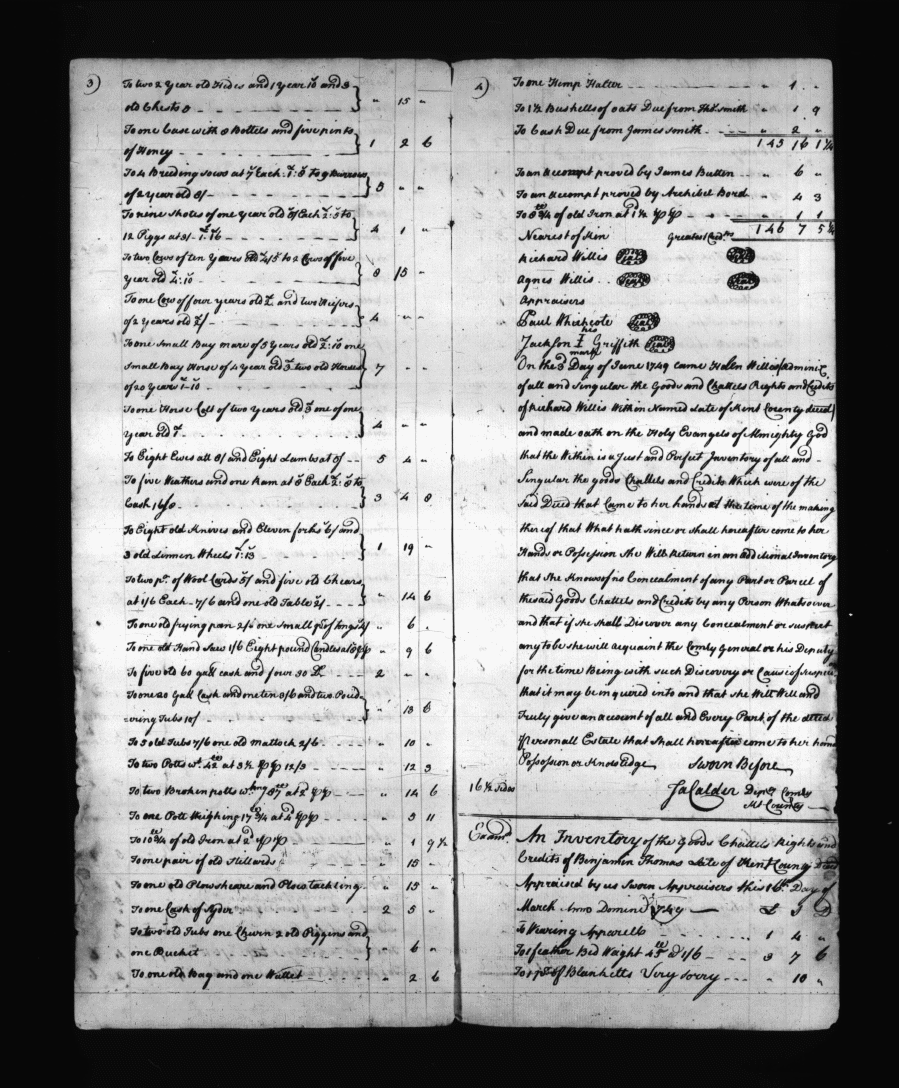 3)
To two 2 Year old Hides and 1 Year 10 and 3
old Chests
" 15 "
To one Case with 8 Bottels and five pints
of Honey
1 2 6
To 4 Breeding Sows at Each to 9 Barrows
of 2 year old 8/
5 " "
To nine Shotes of one Year old Each to
12 Piggs at 3/
4 1 "
To two Cows of ten Years old to 2 Cows of five
Year old
8 15 "
To one Cow of four Years old and two Heifers
of 2 Years old
4 " "
To one Small Bay mare of 5 Years old one
Small Bay Horse of 4 Year old two old Horses
of 20 Years
7 " "
To one Horse Colt of two Years old one of one
Year old
4 " "
To Eight Ewes all 8/ and Eight Lambs at 5/
5 4 "
To five Weathers and one Ram at Each to
Cash 16/8
3 4 8
To Eight old Knives and Eleven forks 6/ and
3 old Linnen Wheels
1 19 "
To two pr. of Wool Cards 5/ and five old Chears
at 1/6 Each 7/6 and one old Table 2/
" 14 6
To one old frying pan 2/ one Small pr of tongs 4/
" 6 "
To one old Hand Saw 1/6 Eight pound Candles at
" 9 6
To five old 60 gall cask and four 30 Do.
2 " "
To one 20 Gall Cask and one ten 8/6 and two Poud
ering Tubs 10/
" 18 6
To 5 old Tubs 7/6 one old mattock 2/6
" 10 "
To two Potts wt. 42 at 3½ 12/3
" 12 3
To two Broken potts wthing 87 at 2
" 14 6
To one Pott Weighing 17 3/4 at 4
" 5 11
To 10 3/4 of old Iron at 2
" 1 9½
To one pair of old Stillards
" 15 "
To one old Plowsheare and Plow tackling
" 15 "
To one Cask of Syder
2 5 "
To two old Tubs one Churn 2 old Piggens and
one Bucket
" 6 "
To one old Bag and one Wallet
" 2 6
4)
To one Hemp Halter " 1 "
To 1½ Bushells of oats Due from Thos. Smith " 1 9
To Cash Due from James Smith " 2 "
145 16 1¼
To an accompt proved by James Butten " 6 "
To an accompt proved by Archibel Bord " 4 3
To 8 3/4 of old Iron at 1½ " 1 1
146 7 5¼
Nearest of Kin Greatest Credrs
Richard Willis Seal Seal
Agnes Willis Seal Seal
Appraisers
Paul Whichcote Seal
Jackson his I mark Griffith Seal
On the 3 Day of June 1749 came Helen Willis administx
of all and Singular the Goods and Chattels Rights and Credits
of Richard Willis Within Named Late of Kent County deced
and made oath on the Holy Evangels of Almighty God
that the Within is a Just and Perfect Inventory of all and
Singular the goods Chattels and Credits Which were of the
Said Deced that Came to her hands at the time of the making
thereof that What hath since or shall hereafter come to her
Hands or Possession She Will Return in an additional Inventory
that She Knows of no Concealment of any Part or Parcel of
the said Goods Chattels and Credits by any Person Whatsoever
and that if she shall Discover any Concealment or suspect
any to be she will acquaint the Comsy General or his Deputy
for the time Being with such Discovery or Cause of Suspicn
that it may be inquired into and that she Will Well and
Truly give an account of all and Every Part of the deced
Personall Estate that shall hereafter come to her hand
Possession or Knowledge Sworn Before
16¼ Sides
Ja Calder Depty Comsy
Kt County
Examd.
An Inventory of the Goods Chattels Rights and
Credits of Benjamin Thomas Late of Kent County Deced
Appraised by us Sworn Appraisers this 16th Day of
March Anno Domine 1749 £ S D
To Wearing Apparell 1 4 "
To 1 feather Bed Waight 45 at 1/6 3 7 6
To 1 pr of Blanketts Very sorry " 10 "